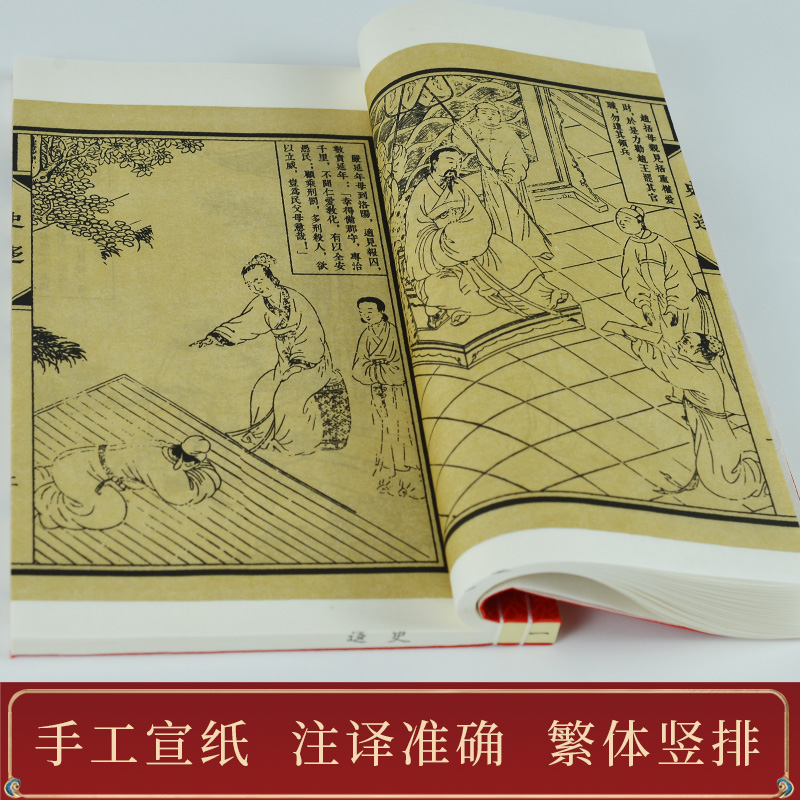 趙括母觀見括重愛
財，於是力勸趙王罷其官
職，勿遣其領兵。
嚴延年母到洛陽，適見報囚，
數責延年：「幸得備郡守，專治
千里，不聞仁愛教化，有以全安
愚民；顧乘刑罰，多刑殺人，欲
以立威，豈為民父母意哉！」
史
一
手工宣纸 注译准确 繁体竖排